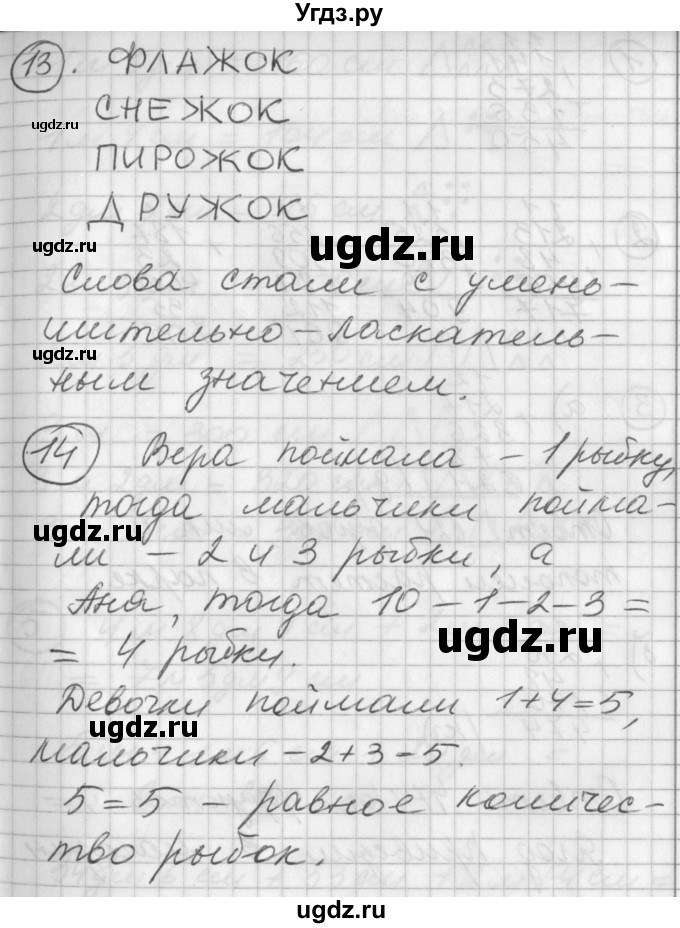 Угдз.ру
13. ФЛАЖОК
СНЕЖОК
ugdz.ru
ПИРОЖОК
ДРУЖОК
ugdz.ru
ugdz.ru
Слова стали с умень-
шительно-ласкатель-
ugdz.ru
ным значением.
14 Вера поймала - 1 рыбку,
тогда мальчики пойма-
ugdz.ru
ли - 2 и 3 рыбки, а
Аня, тогда 10-1-2-3=
= 4 рыбки.
ugdz.ru
Девочки поймали 1+4=5,
ugdz.ru
мальчики - 2+3-5.
5=5 - равное количес-
тво рыбок.
ugdz.ru
ugdz.ru